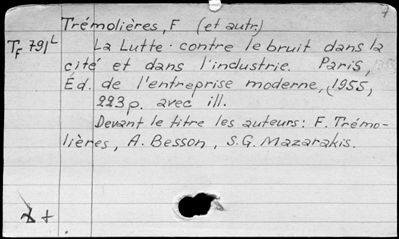 7
Trémolières, F (et autr.)
TF 791L La Lutte contre le bruit dans la
cité et dans l'industrie. Paris,
Éd. de l'entreprise moderne, (1955,
223p. avec ill.
Devant le titre les auteurs: F. Trémo-
lières, A. Besson, S.G. Mazarakis.